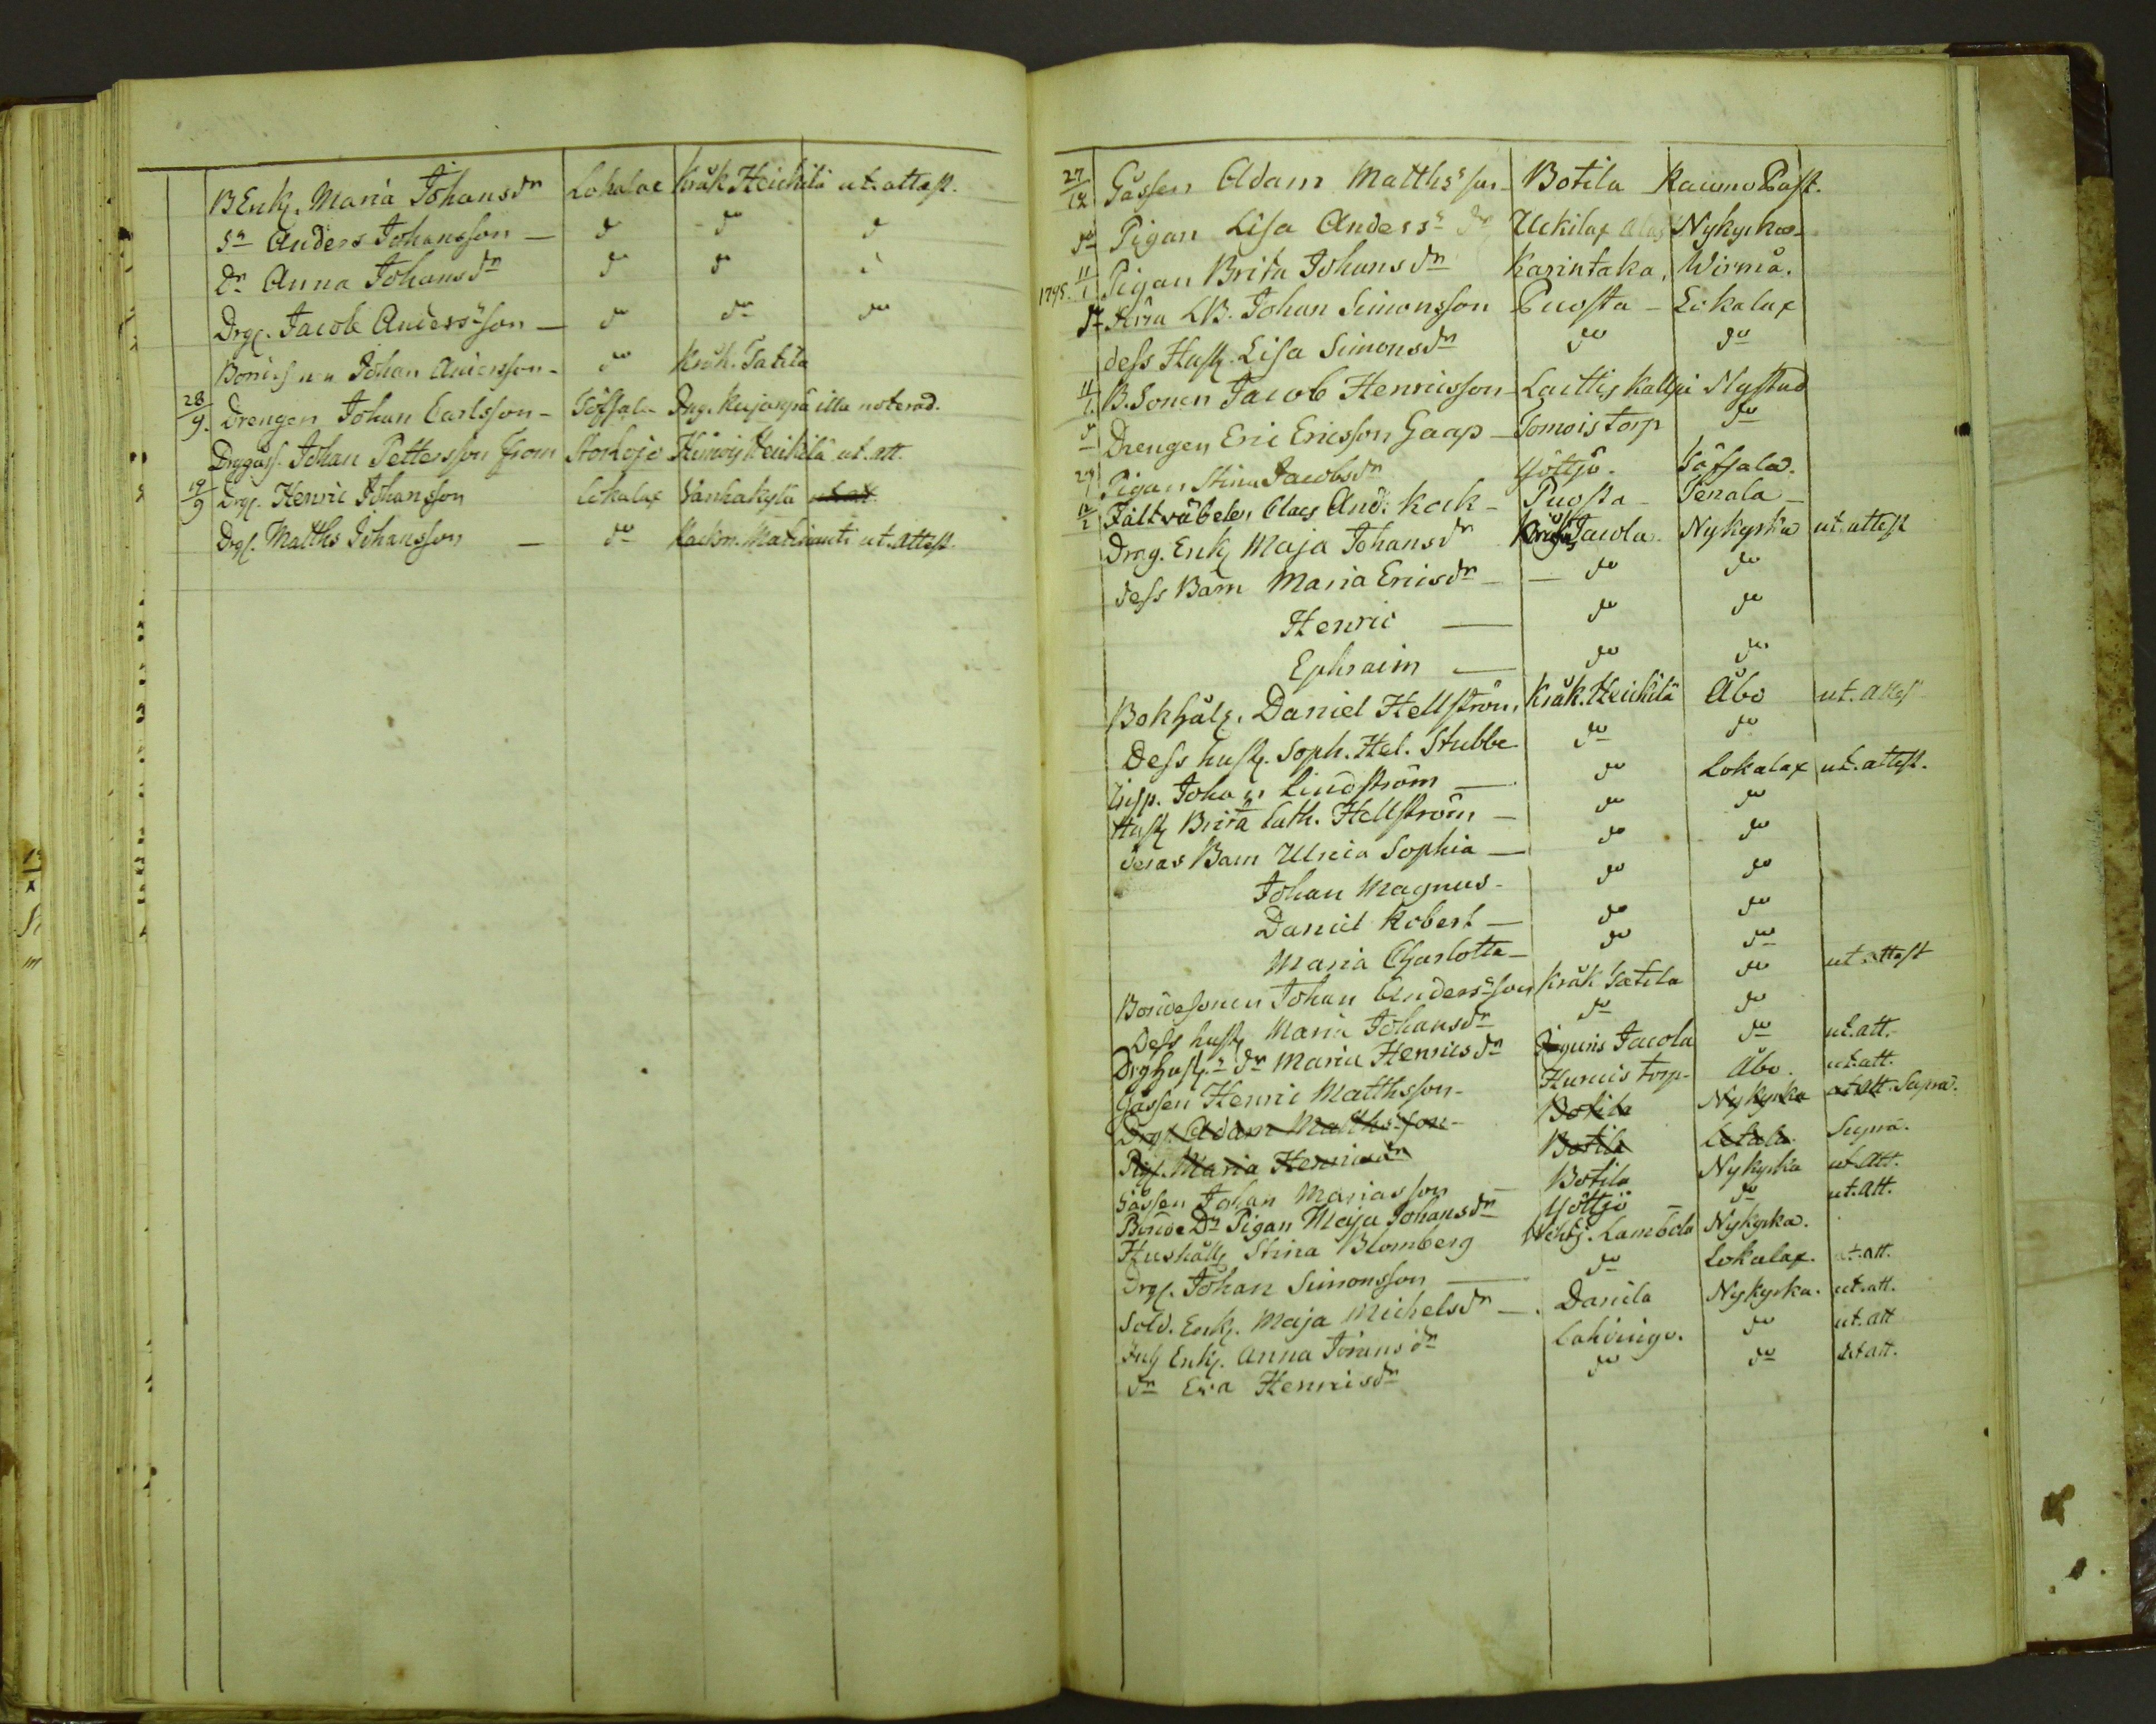 BEnk. Maria Johansdr Lokalax Kråk. Heickilä ut. attest.
Sn Anders Johansson — do do do
Dr Anna Johansdr do do do
Drg. Jacob Andersson — do do do
Bonds. Johan Andersson - do Kråk. Tatila
28/9. Drengen Johan Carlsson - Töfsala illa noterad.
Drggåss. Johan Pettersson From Heickilä ut. att.
19/9 Drg. Henric Johansson Lokalax Vanhakylä ut att
Drg. Matths Johansson — do ut. attest.
27/12 Gåssen Adam Matthsson - Botila Raumo Past.
do Pigan Lisa Anders dr Uckilax Nykyrka
1795. 11/1 Pigan Brita Johansdr Karintaka, Wirmå.
do LB. Johan Simonsson Puosta - Lokalax
dess Hust. Lisa Simonsdr do do
11/1. B.Sonen Jacob Henricsson - Laittis Nystad
do Drengen Eric Ericsson Gaap - Tomois torp do
29/1 Pigan Stina Jacobsdr Yöttjö. Töfsala.
12/2 Fältväbelen Claes And. Kock - Puosta - Tenala -
Drag. Enk. Maja Johansdr Jacola. Nykyrka ut. attest
dess Barn Maria Ericsdr - — do do
Henric — do do
Ephraim — do do
Bokhål. Daniel Hellström, Kråk. Heickilä Åbo ut. attest
Dess hust. Soph. Hel. Stubbe do do
Insp. Johan Lindström — do Lokalax ut. attest.
Hust. Brita Cath. Hellström - do do
deras Barn Ulrica Sophia — do do
Johan Magnus - do do
Daniel Robert — do do
Maria Charlotta — do do
Bondesonen Johan Andersson Kråk Tatila do ut. attest
Dess hust. Maria Johansdr do do
Drghust. Dr Maria Henricsdr Jacola do ut. att.
Gåssen Henric Matthsson - Hurnis torp - Åbo. ut. att.
Drg. Adam Matthsson - Botila Nykyrka ut att Supra.
Pig. Maria Henricsdr Botila Letala. Supra.
Gåssen Johan Mariasson - Botila Nykyrka ut. att.
Bonde Dr Pigan Maja Johansdr Yöttjö - do ut. att.
Hushåll. Stina Blomberg Lambola Nykyrka.
Drg. Johan Simonsson — do Lokalax. ut. att.
Sold. Enk. Maja Michelsdr — Danila Nykyrka. ut. att.
Enk. Anna Jöransdr Lahdingo. do ut. att
Dr Eva Henricsdr do do ut att.